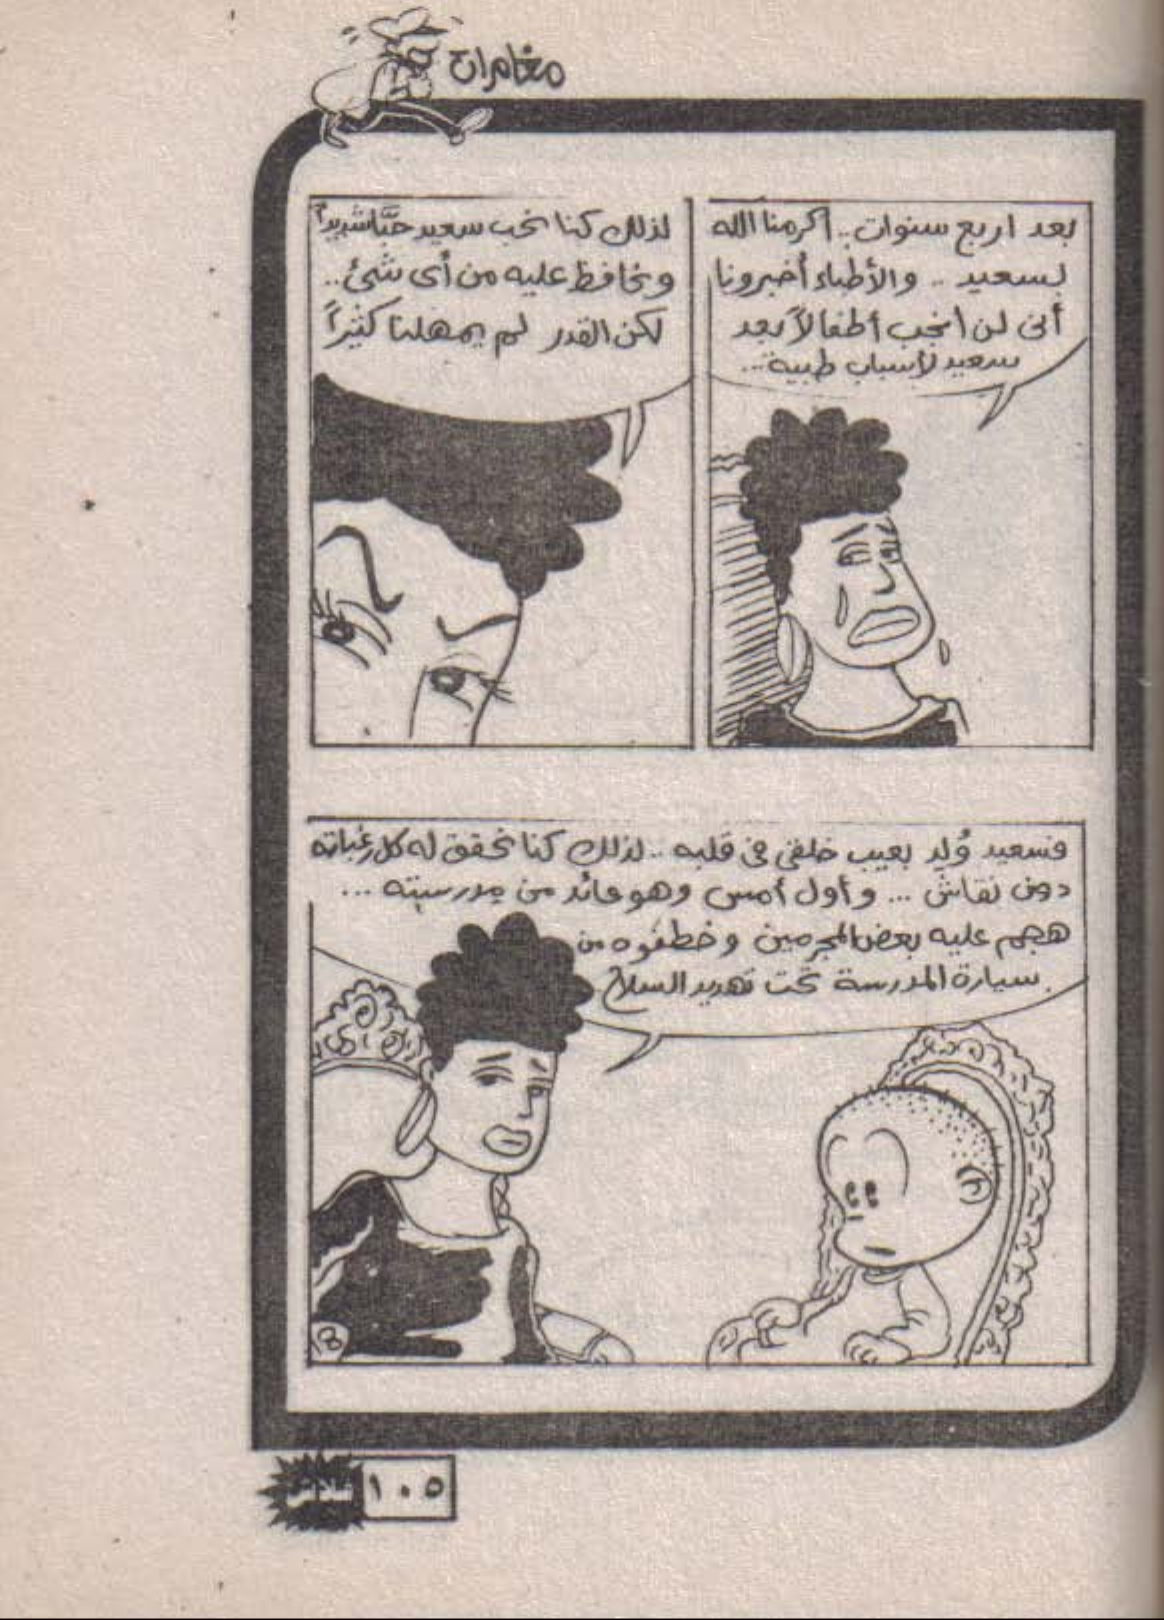 مغامرات
بعد اربع سنوات.. اكرمنا الله
بسعيد .. والأطباء أخبرونا
أنى لن أنجب أطفالاً بعد
سعيد لأسباب طبية...
لذلك كنا نحب سعيد حبَّا شديداً
ونحافظ عليه من أى شئ..
لكن القدر لم يمهلنا كثيراً
فسعيد وُلِد بعيب خلقى فى قلبه .. لذلك كنا نحقق له كل رغباته
دون نقاش ... و أول أمس وهو عائد من مدرسته ...
هجم عليه بعض المجرمين وخطفوه من
سيارة المدرسة تحت تهديد السلاح
١٠٥
فلاش